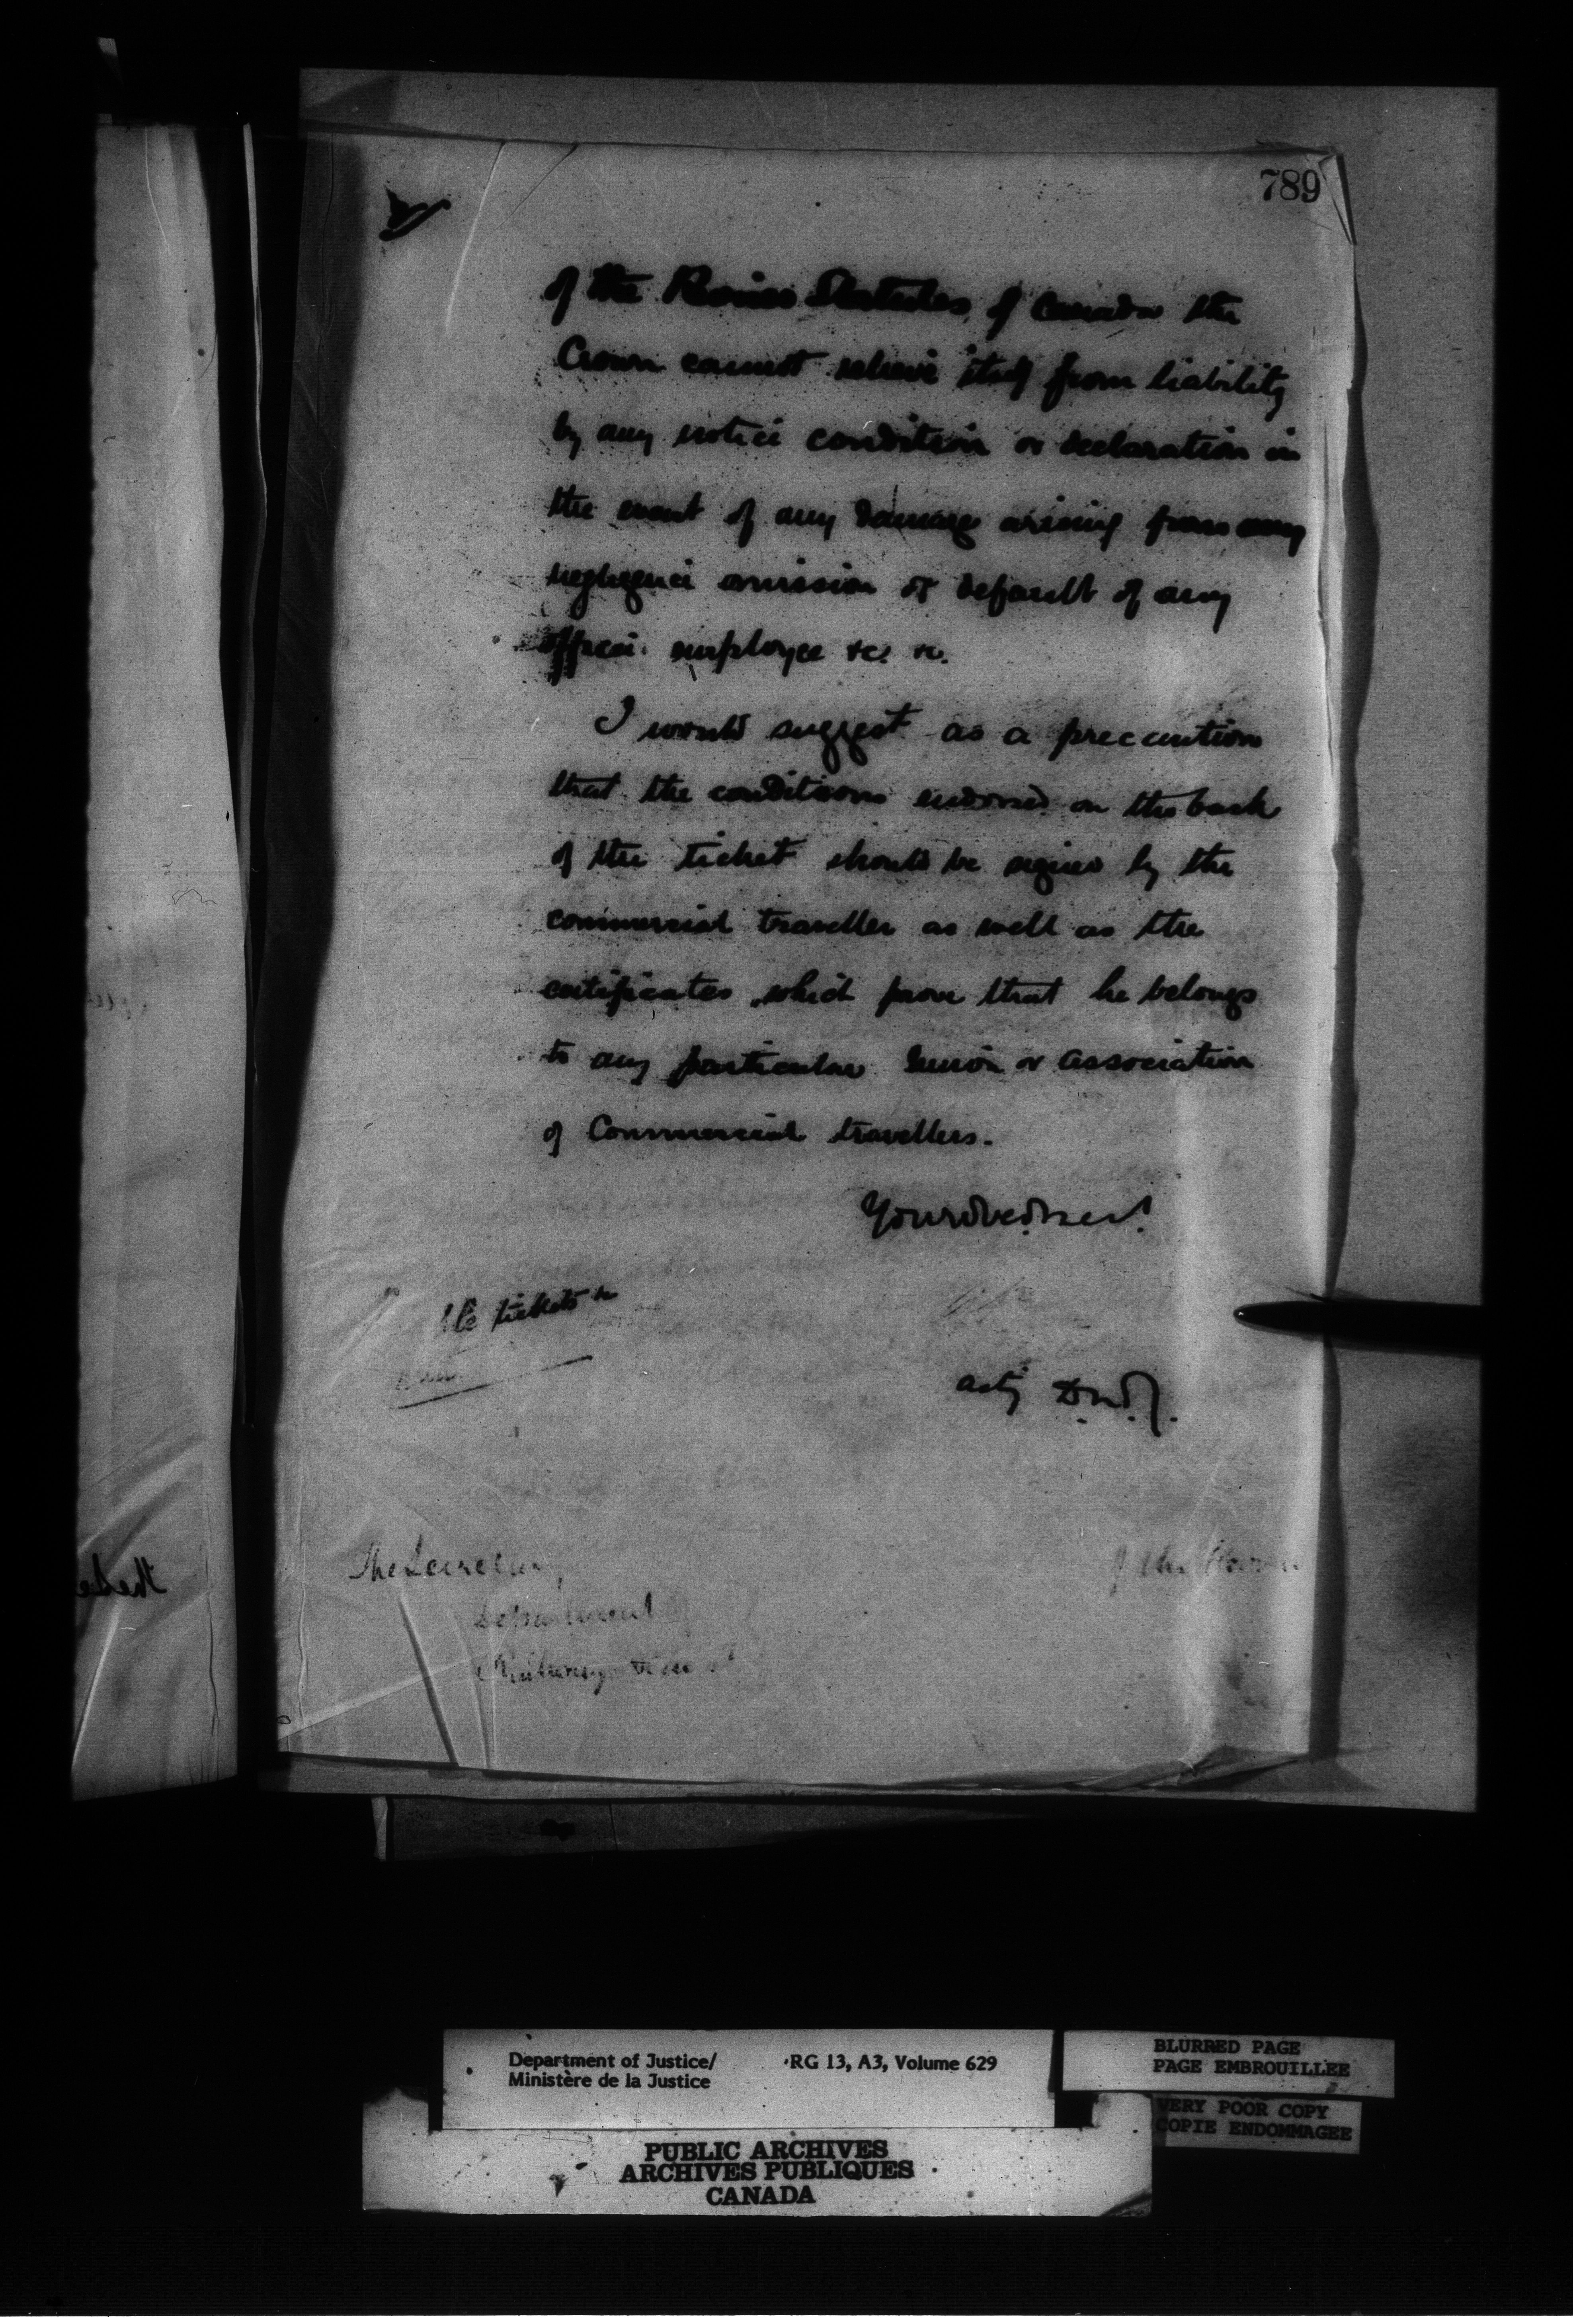 789
of the Revised Statutes of Canada the
Crown cannot relieve itself from liability
by any notice condition or declaration in
the event of any damage arising from any
negligence omission or default of any
officer employee &c. &c.
I would suggest as a precaution
that the conditions endorsed on the back
of the ticket should be signed by the
commercial traveller as well as the
certificates which prove that he belongs
to any particular Union or association
of Commercial travellers.
Your obed. servt.
tickets &c
actg D.M.J.
The Secretary,
Department
Railways
of the
Department of Justice/
Ministère de la Justice
RG 13, A3, Volume 629
BLURRED PAGE
PAGE EMBROUILLEE
VERY POOR COPY
COPIE ENDOMMAGEE
PUBLIC ARCHIVES
ARCHIVES PUBLIQUES
CANADA